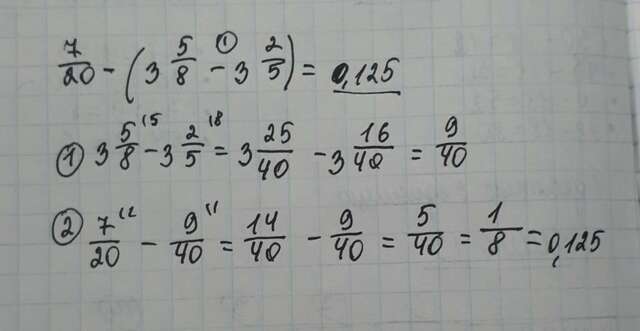 7/20 - (3 5/8 -① 3 2/5) = 0,125
① 3 5/8^(5 - 3 2/5^(8 = 3 25/40 - 3 16/40 = 9/40
② 7/20^(2 - 9/40^(1 = 14/40 - 9/40 = 5/40 = 1/8 = 0,125